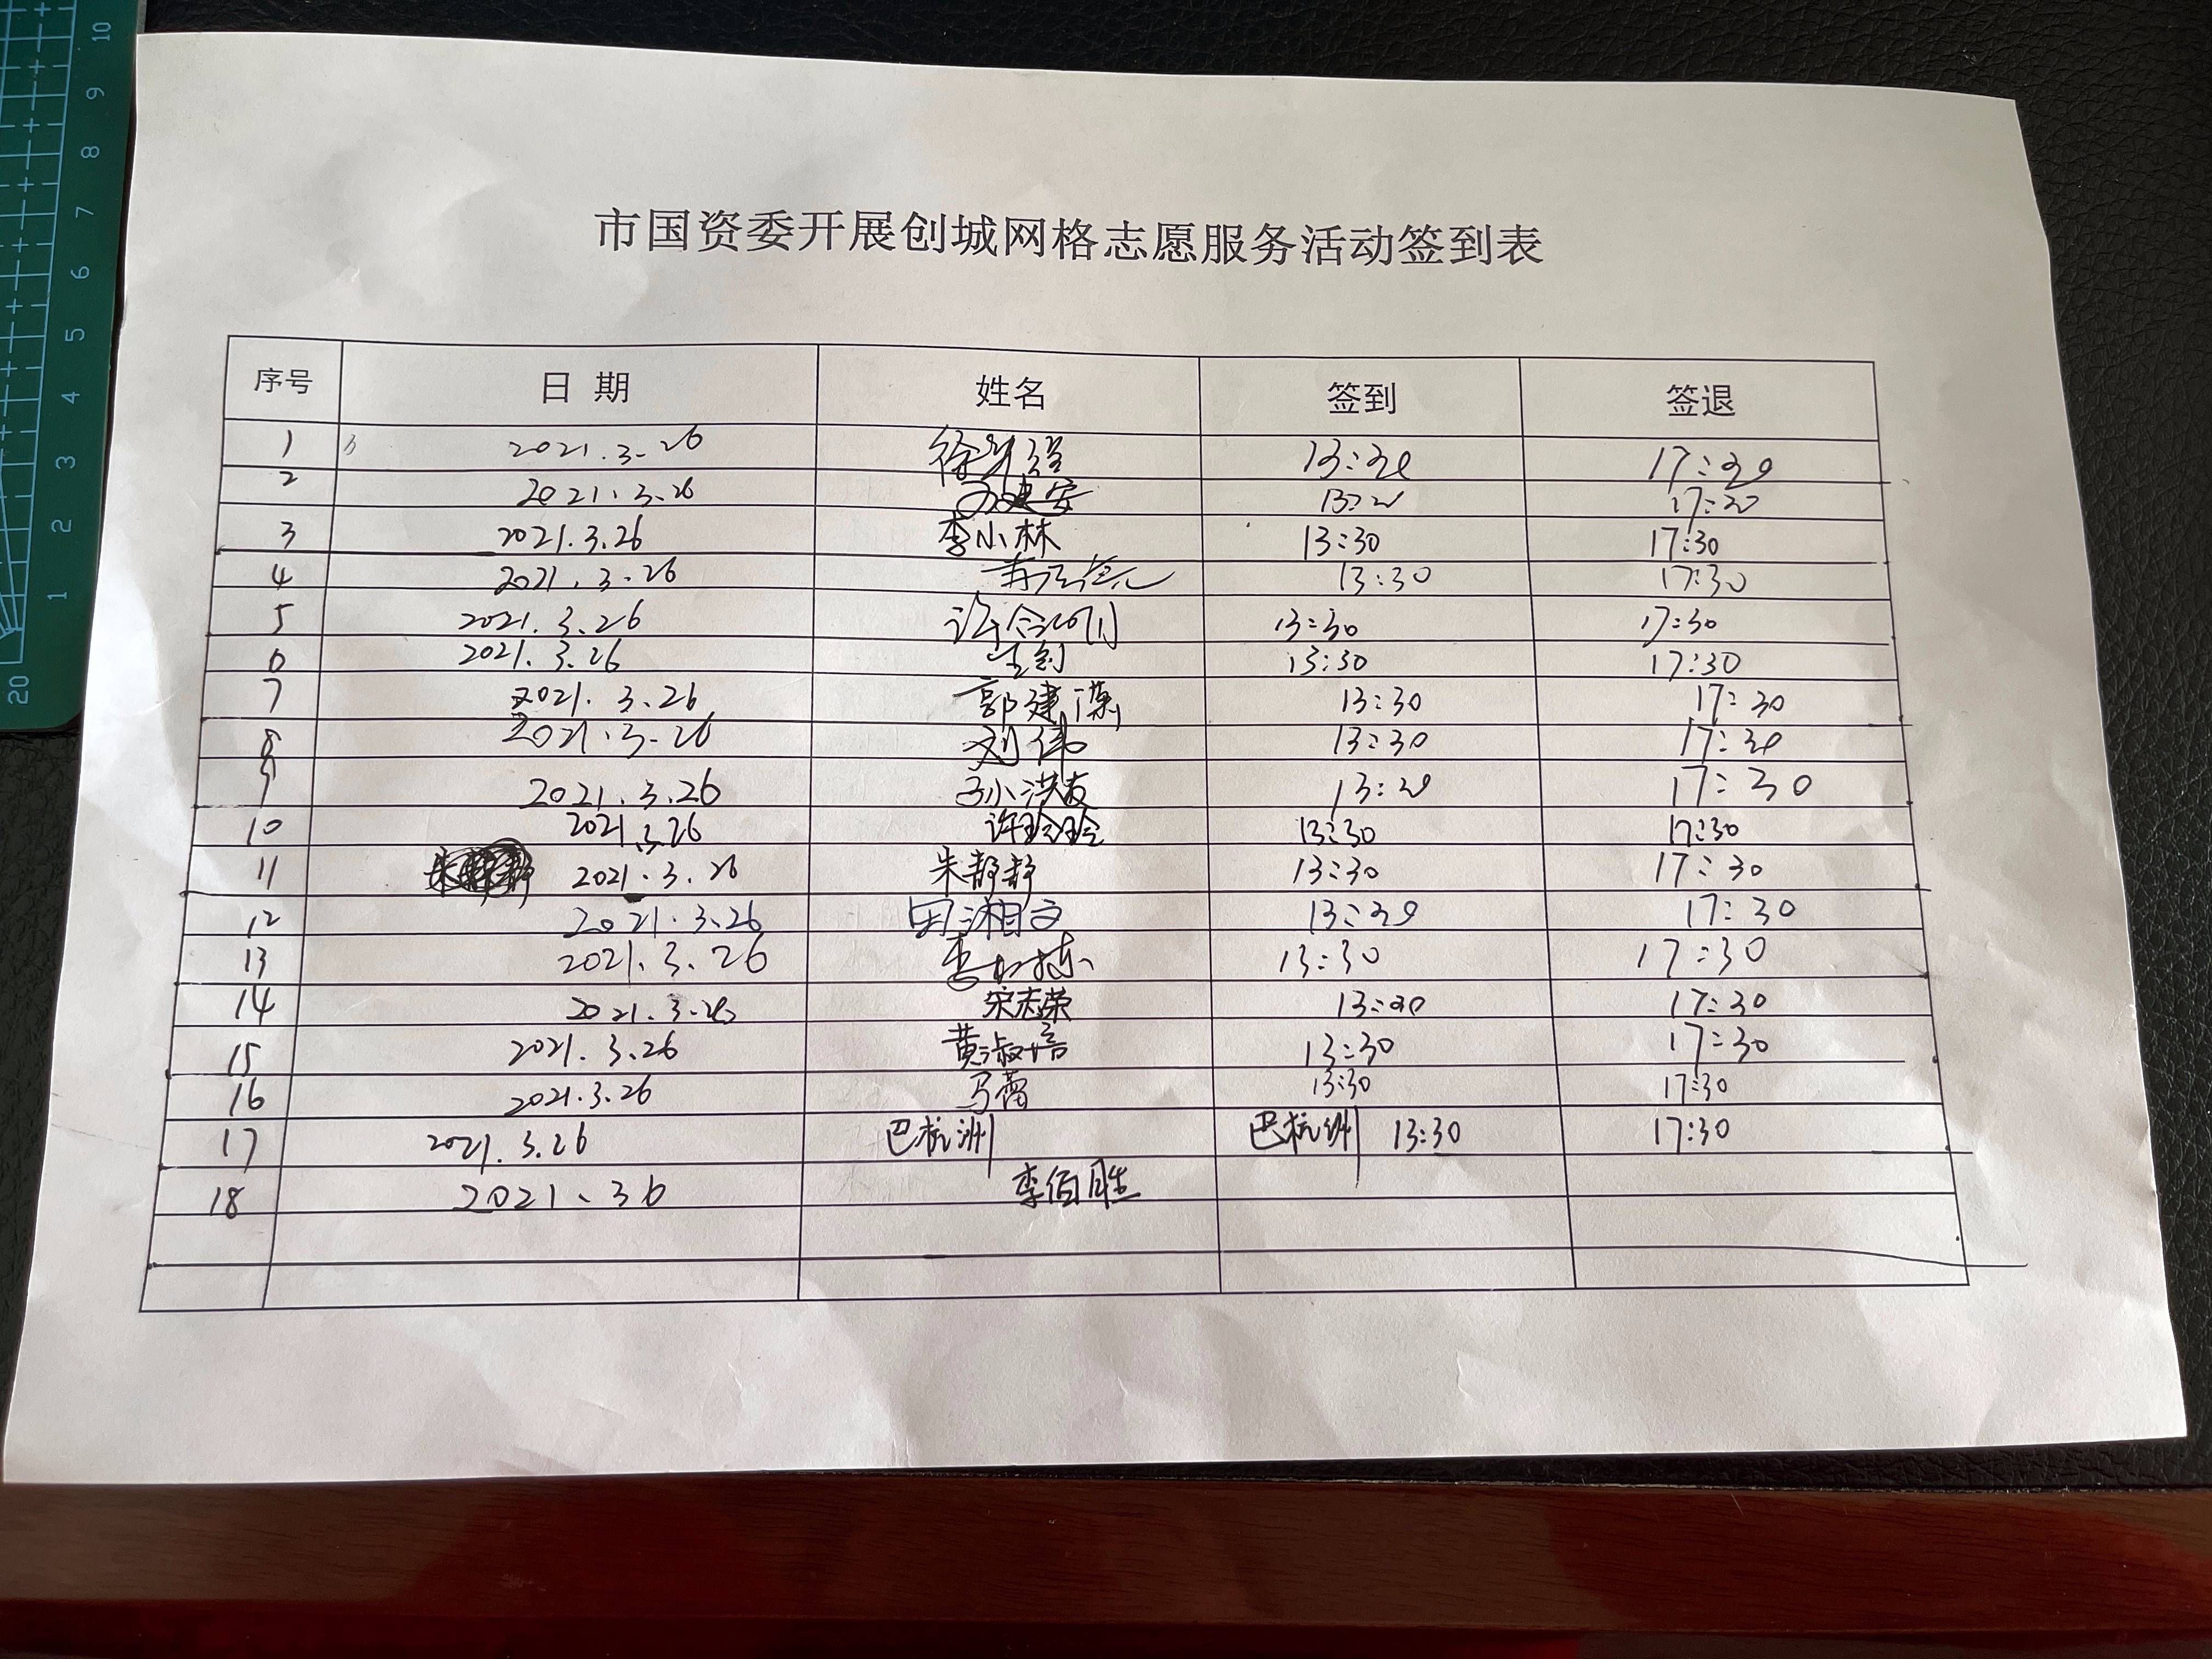 市国资委开展创城网格志愿服务活动签到表
序号 日期 姓名 签到 签退
1 2021.3.26 13:30 17:30
2 2021.3.26 17:30
3 2021.3.26 李小林 13:30 17:30
4 2021.3.26 13:30 17:30
5 2021.3.26 13:30 17:30
6 2021.3.26 13:30 17:30
7 2021.3.26 13:30 17:30
8 2021.3.26 刘伟 13:30 17:30
9 2021.3.26 孙洪友 13:30 17:30
10 2021.3.26 许玲玲 13:30 17:30
11 2021.3.26 朱静静 13:30 17:30
12 2021.3.26 田湘文 13:30 17:30
13 2021.3.26 13:30 17:30
14 2021.3.26 宋志荣 13:30 17:30
15 2021.3.26 黄淑培 13:30 17:30
16 2021.3.26 马蕾 13:30 17:30
17 2021.3.26 巴杭洲 巴杭洲 13:30 17:30
18 2021、36 李佰胜
10
9
8
7
6
5
4
3
2
1
20